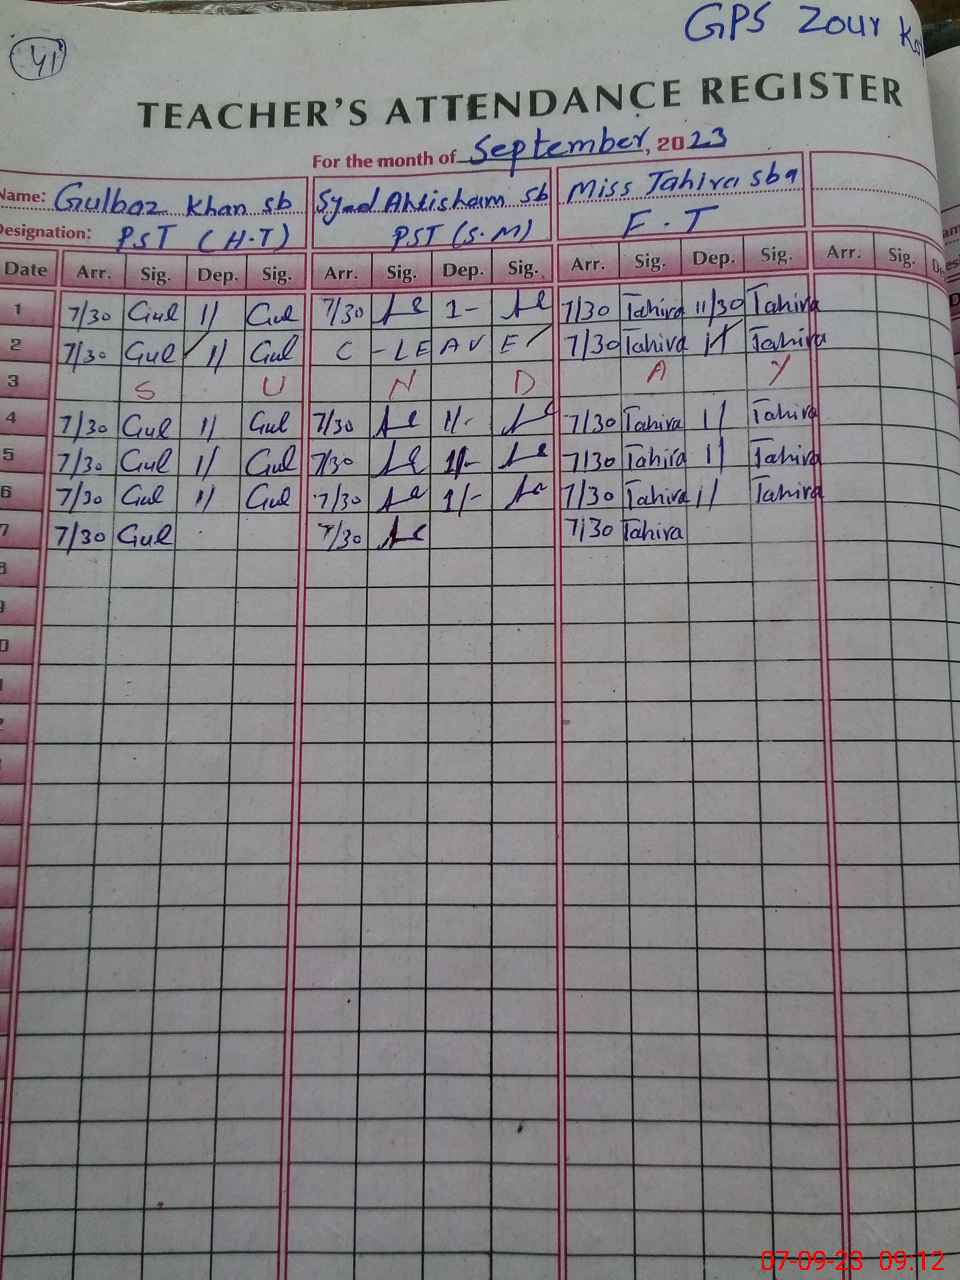 GPS Zour
41
TEACHER'S ATTENDANCE REGISTER
For the month of September, 2023
Name: Gulbaz Khan sb Syed Ahtisham sb Miss Tahira sba
Designation: PST (H.T) PST (S.M) F.T
Date Arr. Sig. Dep. Sig. Arr. Sig. Dep. Sig. Arr. Sig. Dep. Sig. Arr. Sig.
1 7/30 Gul 11 Gul 7/30 1- 7/30 Tahira 11/30 Tahira
2 7/30 Gul 11 Gul C - LEAVE 7/30 Tahira 11 Tahira
3 S U N D A Y
4 7/30 Gul 11 Gul 7/30 11- 7/30 Tahira 11 Tahira
5 7/30 Gul 11 Gul 7/30 11- 7/30 Tahira 11 Tahira
6 7/30 Gul 11 Gul 7/30 11- 7/30 Tahira 11 Tahira
7 7/30 Gul 7/30 7/30 Tahira
8
9
07-09-23 09:12